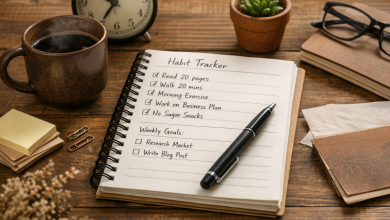 Habit Tracker
Read 20 pages
Walk 20 mins
Morning Exercise
Work on Business Plan
No Sugar Snacks
Weekly Goals:
Research Market
Write Blog Post